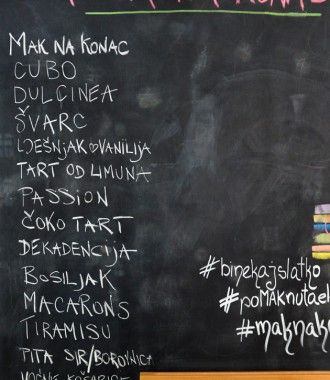 MAK NA KONAC
CUBO
DULCINEA
ŠVARC
LJEŠNJAK VANILIJA
TART OD LIMUNA
PASSION
ČOKO TART
DEKADENCIJA
BOSILJAK
MACARONS
TIRAMISU
PITA SIR/BOROVNICA
VOĆNE KOŠARICE
#binekajslatko
#poMAKnuta
#maknak